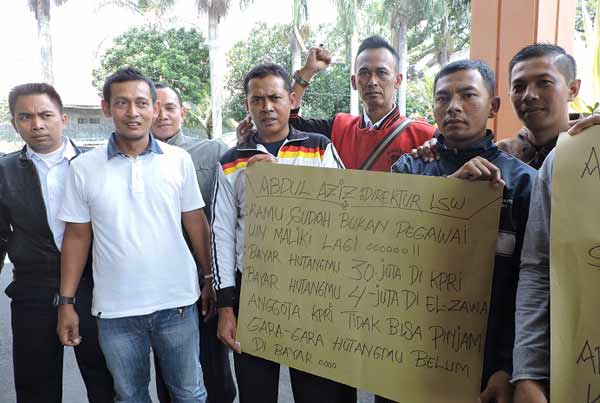 ABDUL AZIZ DIREKTUR LSW
KAMU SUDAH BUKAN PEGAWAI
UIN MALIKI LAGI ......!!
BAYAR HUTANGMU 30 JUTA DI KPRI
BAYAR HUTANGMU 4-JUTA DI EL-ZAWA
ANGGOTA KPRI TIDAK BISA PINJAM
GARA-GARA HUTANGMU BELUM
DI BAYAR ....